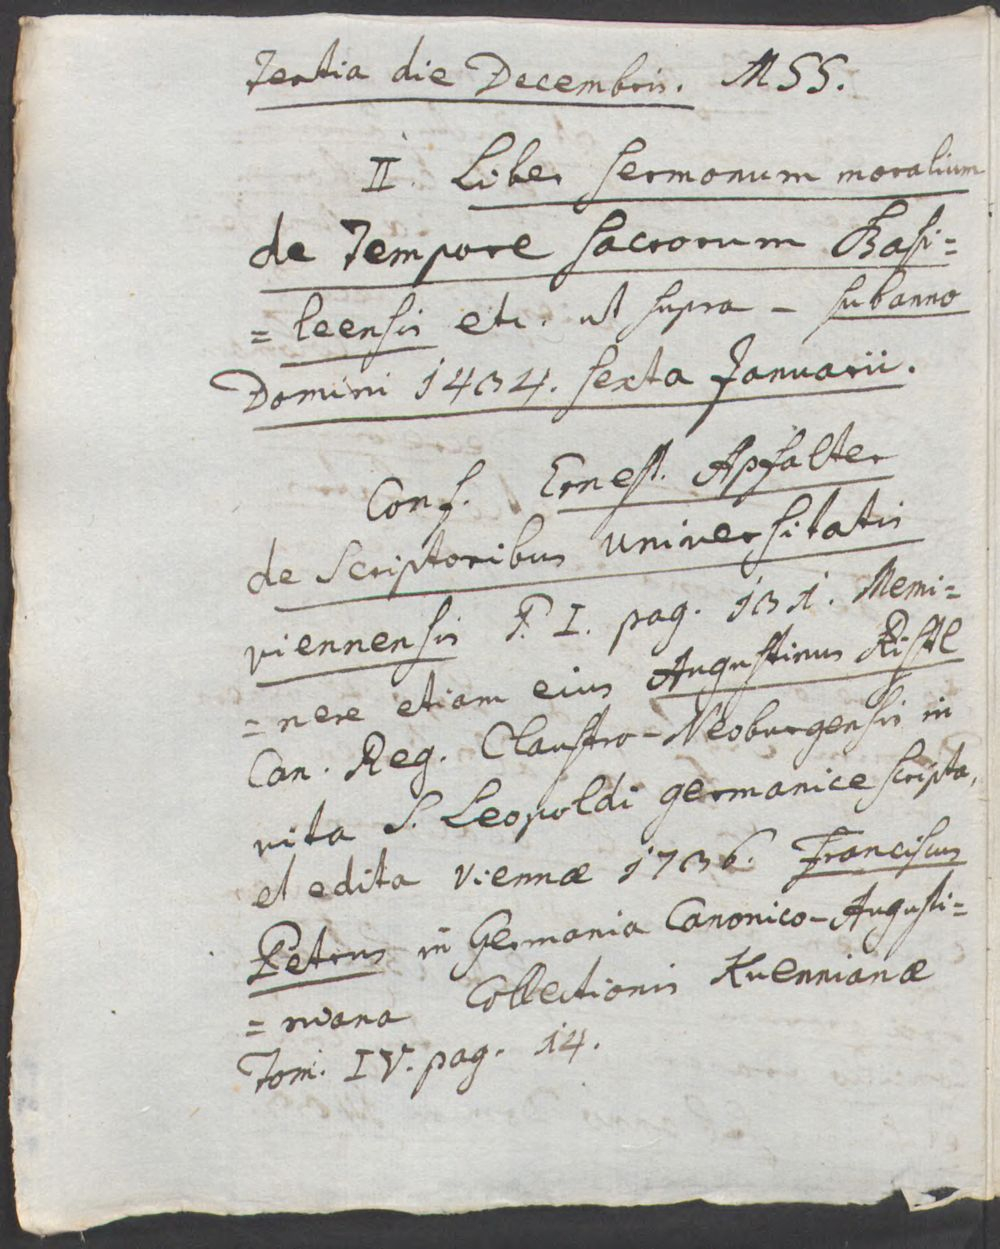 Tertia die Decembris. MSS.
II. Liber Sermonum moralium
de Tempore Sacrorum Basi=
=leensis etc. ut supra – sub anno
Domini 1434. sexta Januarii.
Conf. Ernest. Apfalter
de Scriptoribus Universitatis
viennensis P. I. pag. 131. Memi=
=nere etiam eius Augustinus Ristl
Can. Reg. Claustro-Neoburgensis in
vita S. Leopoldi germanice scripta,
et edita Viennæ 1736. Franciscus
Petrus in Germania Canonico-Augusti=
=niana Collectionis Kuennianæ
Tom. IV. pag. 14.